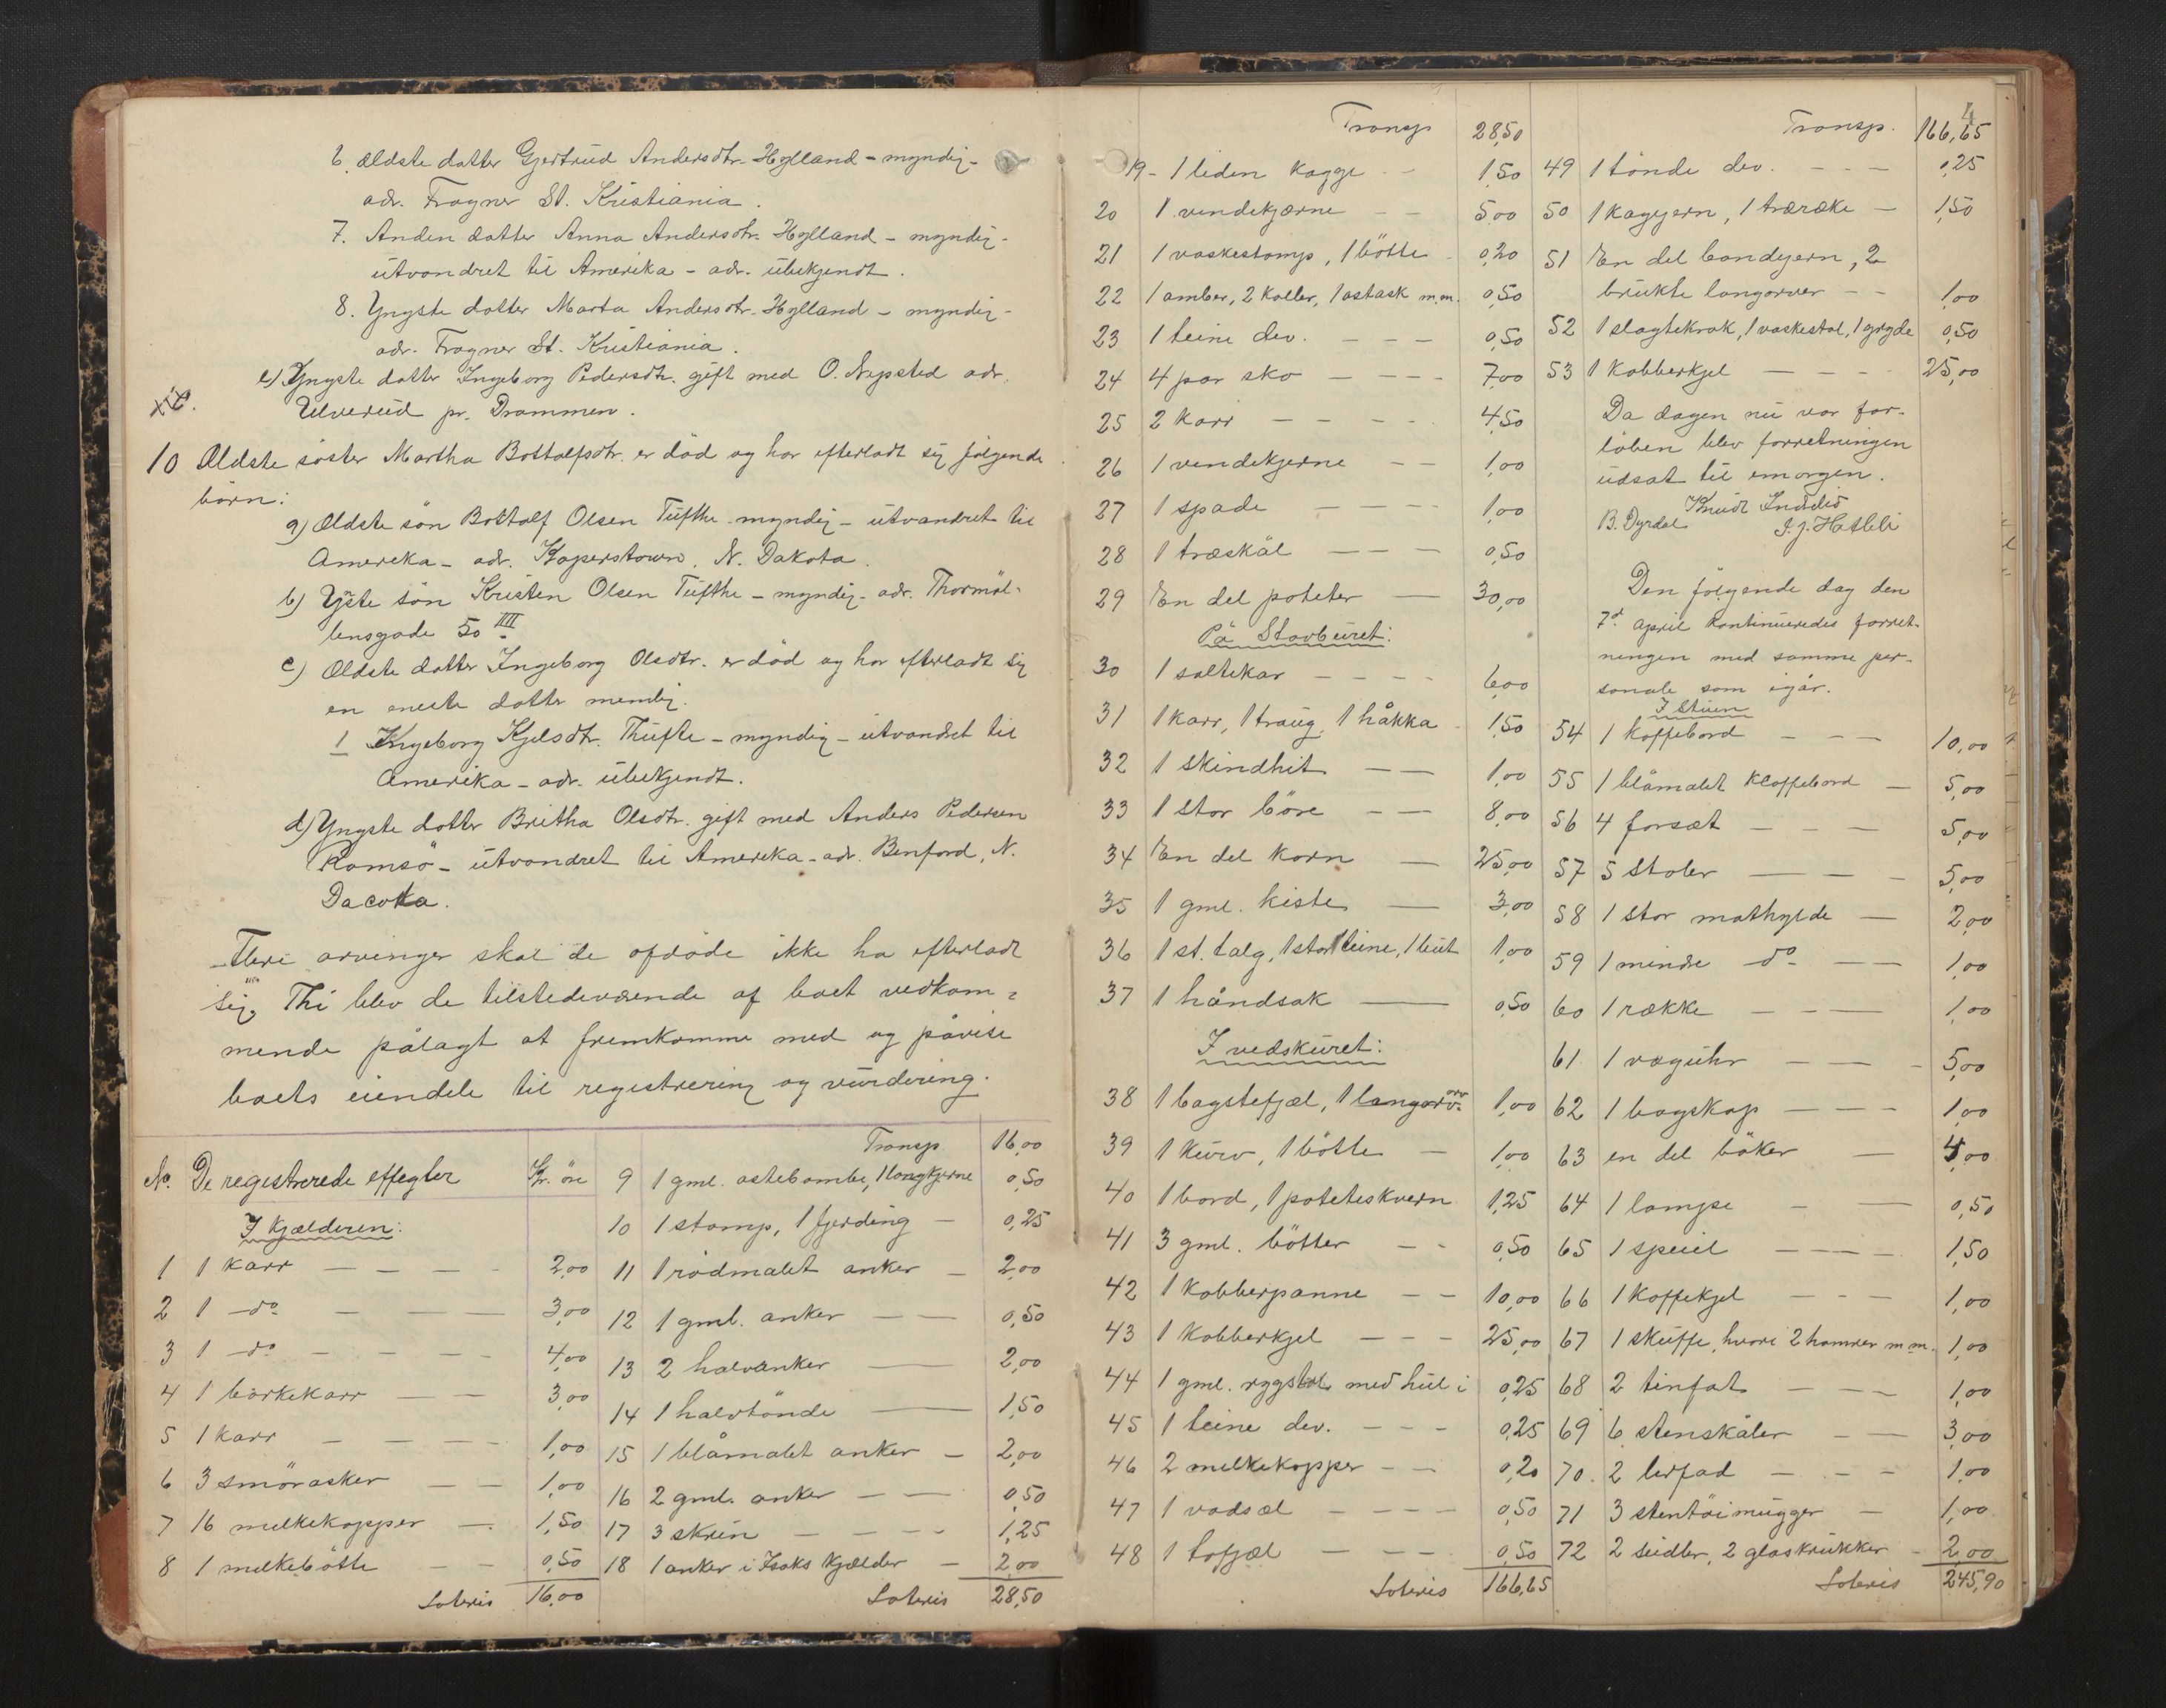 6. ældste datter Gjertrud Andersdtr. Hylland - myndig -
adr. Frogner St. Kristiania.
7. Anden datter Anna Andersdtr. Hylland - myndig -
utvandret til Amerika - adr. ubekjendt.
8. Yngste datter Marta Andersdtr. Hylland - myndig -
adr. Frogner St. Kristiania.
e) Yngste datter Ingeborg Pedersdtr. gift med O. Nepsted adr.
Ulverud pr. Drammen.
10 Ældste söster Martha Bottolfsdtr. er död og har efterladt sig følgende
börn:
a) Ældste sön Bottolf Olsen Tufthe - myndig - utvandret til
Amerika - adr. Koperstown, N. Dakota.
b) Yste sön Kristen Olsen Tufthe - myndig - adr. Thormøl-
lensgade 50 IIII
c) Ældste datter Ingeborg Olsdtr. er död og har efterladt sig
en eneste datter nemlig.
1 Ingeborg Kjelsdtr. Thufte - myndig - utvandret til
Amerika - adr. ubekjendt.
d) Yngste datter Britha Olsdtr. gift med Anders Pedersen
Romsö - utvandret til Amerika - adr. Benford, N.
Dacota.
Flere arvinger skal de afdöde ikke ha efterladt
sig. Thi blev de tilstedeværende af boet vedkom-
mende pålagt at fremkomme med og påvise
boets eiendele til registrering og vurdering.
No. De registrerede effegter Kr. öre
I kjælderen:
1 1 karr 2,00
2 1 do 3,00
3 1 do 4,00
4 1 börkekarr 3,00
5 1 karr 1,00
6 3 smörasker 1,00
7 16 melkekopper 1,50
8 1 melkebötte 0,50
Lateris 16,00
Transp. 16,00
9 1 gml. ostebombe, 1 langkjerne 0,50
10 1 stamp, 1 fjerding 0,25
11 1 rödmalet anker 2,00
12 1 gml. anker 0,50
13 2 halvanker 2,00
14 1 halvtönde 1,50
15 1 blåmalet anker 2,00
16 2 gml. anker 0,50
17 3 skrin 1,25
18 1 anker i Isaks kjælder 2,00
Lateris 28,50
Transp 28,50
19 - 1 liden kagge 1,50
20 1 vendekjærne 5,00
21 1 vaskestamp, 1 bötte 0,20
22 1 ambar, 2 koller, 1 ostask m.m. 0,50
23 1 teine div. 0,50
24 4 par sko 7,00
25 2 karr 4,50
26 1 vendekjerne 1,00
27 1 spade 1,00
28 1 træskål 0,50
29 En del poteter 30,00
På Stavburet:
30 1 saltekar 6,00
31 1 karr, 1 traug, 1 håkka 1,50
32 1 skindhit 1,00
33 1 stor böre 8,00
34 En del korn 25,00
35 1 gml. kiste 3,00
36 1 st. talg, 1 stor teine, 1 but 1,00
37 1 håndsak 0,50
I vedskuret:
38 1 bagstefjæl, 1 langorv 1,00
39 1 kurv, 1 bötte 1,00
40 1 bord, 1 poteteskvern 1,25
41 3 gml. bötter 0,50
42 1 kobberpanne 10,00
43 1 kobberkjel 25,00
44 1 gml. rygstol med hul i 0,25
45 1 teine div. 0,25
46 2 melkekopper 0,20
47 1 vadsæl 0,50
48 1 tofjæl 0,50
Lateris 166,65
4
Transp. 166,65
49 1 tönde div. 0,25
50 1 kagejern, 1 træræke 1,50
51 En del bandejern, 2
brukte langorver 1,00
52 1 slagtekrak, 1 vaskestol, 1 gryde 0,50
53 1 kobberkjel 25,00
Da dagen nu var for-
löben blev forretningen
udsat til imorgen.
Knudt
B. Dyrdal I. J. Hatleli
Den følgende dag den
7d april kontinueredes forret-
ningen med samme per-
sonale som igår.
I Stuen
54 1 kaffebord 10,00
55 1 blåmalet klaffebord 5,00
56 4 forsæt 5,00
57 5 stoler 5,00
58 1 stor mathylde 2,00
59 1 mindre do 1,00
60 1 række 1,00
61 1 væguhr 5,00
62 1 bogskap 1,00
63 en del böker 4,00
64 1 lampe 0,50
65 1 speiel 1,50
66 1 kaffekjel 1,00
67 1 skuffe, hvori 2 hamrer m.m. 1,00
68 2 tinfat 1,00
69 6 stenskåler 3,00
70. 2 lerfad 1,00
71 3 stentöimugger 1,00
72 2 seidler, 2 glaskrukker 2,00
Lateris 245,90